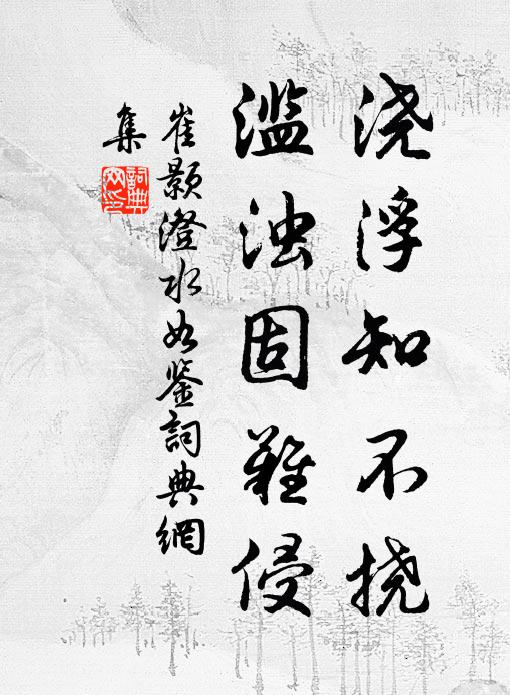 浇浮知不挠
滥浊固难侵
崔颢澄水如鉴詞典網
集
詞典
网印